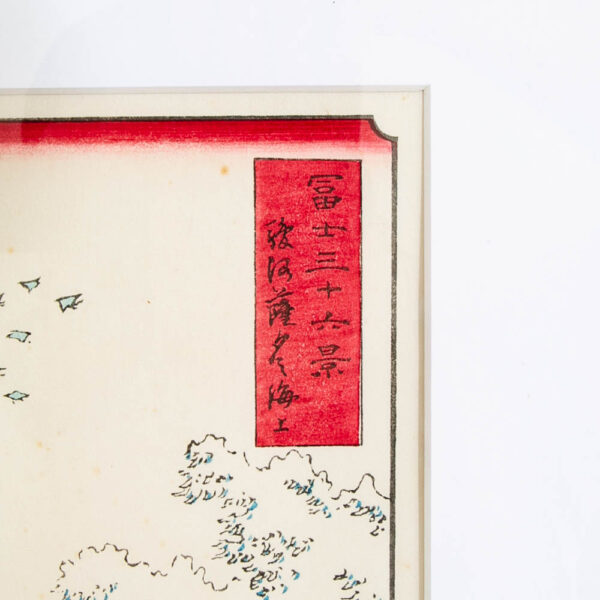 冨士三十六景
駿河薩タ海上